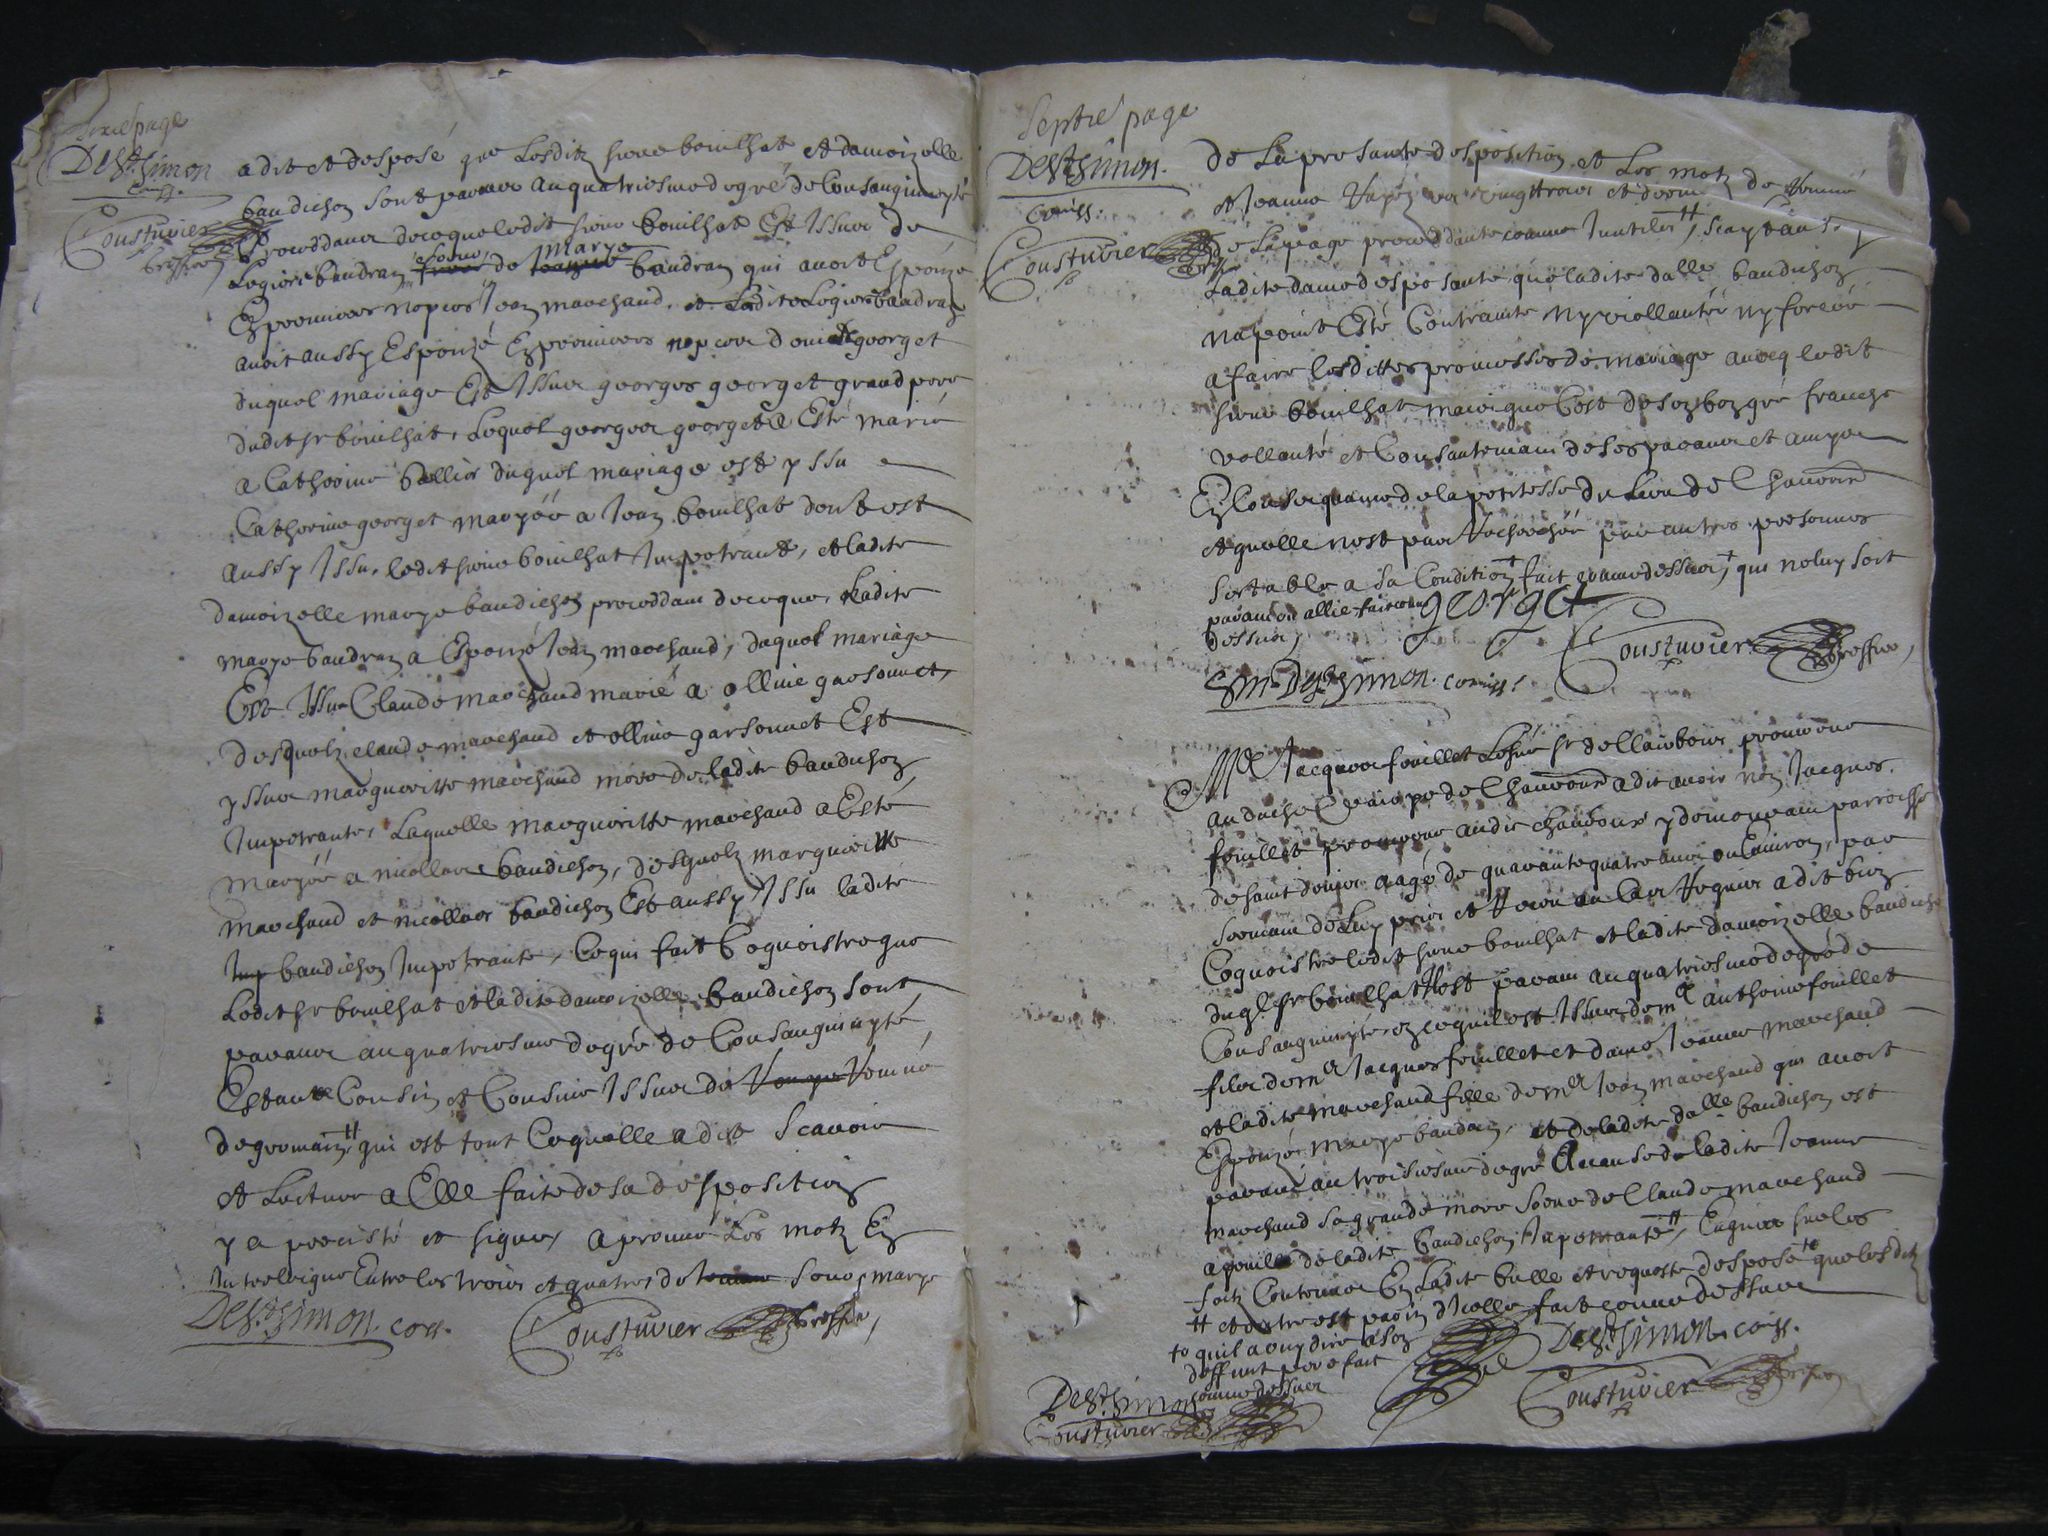 Sixie page
De St Simon
Comiss.
Cousturier
Greffier
a dit et desposé que lesditz sieur bouilhat et damoizelle
baudichon sont parans au quatriesme degré de Consanguinyté
proceddans de ce que ledit sieur bouilhat Est Issue de
Legiere baudran soeur de Marye baudran qui avoit Espouze
En premieres nopces Jean marchand, et Ladite Legiere baudran
avoit aussy Espouzé En premieres nopces denis georget
duquel mariage Est Issue georges georget grand pere
dudit sr bouilhat, Lequel georges georget a Esté marié
a Catherine Tellier duquel mariage est yssu
Catherine georget maryée a Jean bouilhat dont est
aussy Issu, ledit sieur bouilhat Impetrant, et ladite
damoizelle marye baudichon proceddant de ce que, Ladite
marye baudran a Espouzé Jean marchand, duquel mariage
Est Issu Claude marchand marié a ollive garsonnet,
desquelz claude marchand et ollive garsonnet Est
yssue margueritte marchand mere de ladite baudichon
Impetrante, Laquelle margueritte marchand a Esté
maryée a nicollas baudichon, desquelz margueritte
marchand et nicollas baudichon Est aussy Issu ladite
Imp baudichon Impetrante, Ce qui fait Cognoistre que
Ledit sr bouilhat et ladite damoizelle baudichon sont
parans au quatriesme degré de Consanguinyté,
Estant Cousin et Cousine Issus de Remué
de germain # qui est tout Ce quelle a dit Scavoir
et Lecture a Elle faite de sa desposition
y a percisté et signé, aprouvé Les motz En
Interligne Entre les trois et quatre, de soeur marye
De St Simon. com.
Cousturier Greffier
Septie page
De St Simon.
Comiss.
Cousturier
de La presante desposition, et Les motz de Remué
et Jeanne Rayez es vingt trois et
de La page preceddante comme Inutiles # scaytans y
Ladite dame desposante que ladite dalle baudichon
na point Esté Contrainte ny viollantée ny forcée
a faire lesdittes promesses de mariage avecq ledit
sieur bouilhat mais que Cest de son bon gré franche
vollanté et Consantemant de ses parans et amys
En Consequance de la petitesse du Lieu de Chauvour
et quelle nest pas Recherchée par autres personnes
sortable a sa Condition + fait comme dessus, + qui ne luy soit
parant ou allié fait comme
dessus,
georget
Cousturier Greffier,
Sim De St Simon. comiss.
Me Jacques fouillet Lesné sr de Clairbois procureur
au duché de Chauvour a dit avoir nom Jacques
fouillet procureur audit Chauvour y demeurant parroisse
de saint aagé de quarante quatre ans ou Environ, par
sermant de Luy pris et Receu au Cas Requis a dit bien
Cognoistre ledit sieur bouilhat et ladite damoizelle baudichon
duql. sr bouilhat Il est parant au quatriesme degré de
Consanguinyté, en ce quil est Issue de me anthoine fouillet
filz de me Jacques fouillet et dame Jeanne marchand
et ladite marchand fille de me Jean marchand qui avoit
Espouzé marye baudran, et de ladite dalle baudichon est
parant au troisiesme degré a cause de ladite Jeanne
marchand sa grande mere soeur de Claude marchand
ayeulle de ladite baudichon Impetrante #, Enquis sur les
faitz Contenus En Ladite bulle et requeste despose to que lesditz
# et outre est parin dicelle fait comme dessus
to quil a ouy dire a son
deffunt pere fait
comme dessus
De St Simon. comiss.
Cousturier Greffier
De St Simon
Cousturier